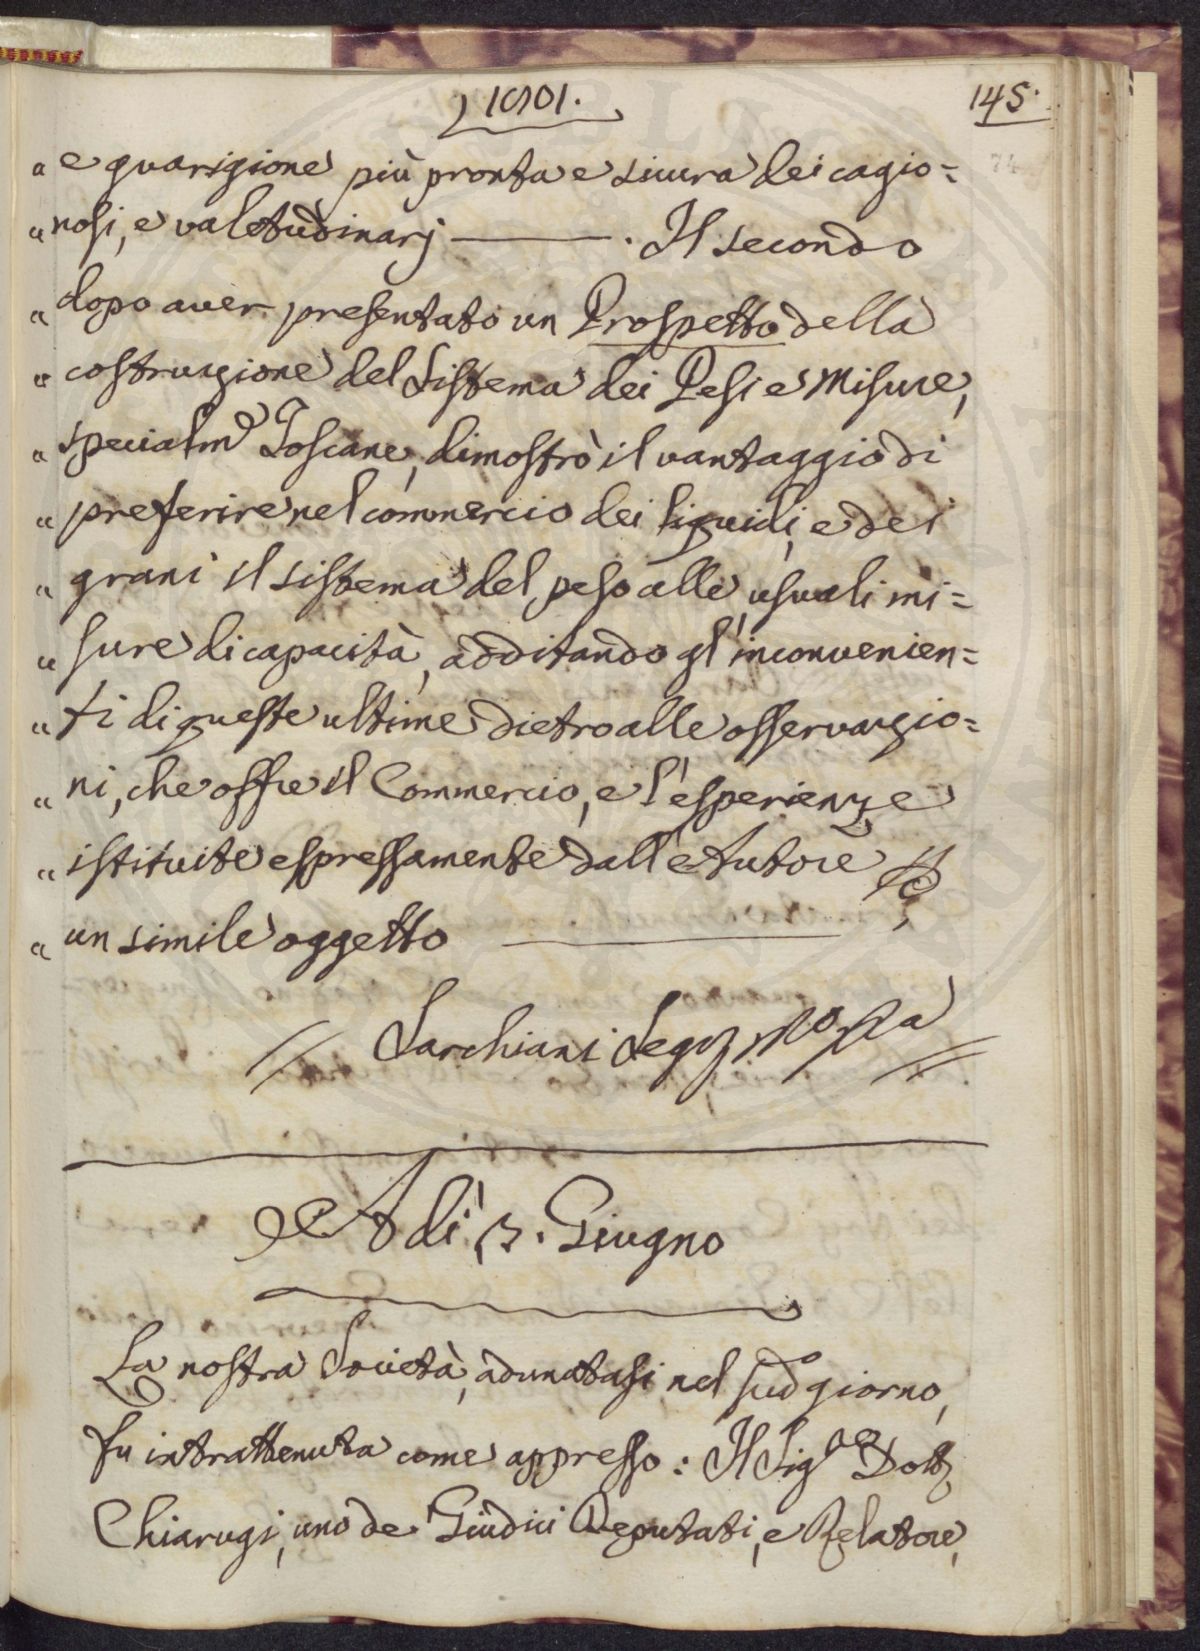 1801.
145.
74
„ e guarigione più pronta e sicura dei cagio=
„ nosi, e valetudinarj ———. Il secondo
„ dopo aver presentato un Prospetto della
„ costruzione del Sistema dei Pesi e Misure,
„ specialm.e Toscane, dimostrò il vantaggio di
„ preferire nel commercio dei liquidi, e dei
„ grani il sistema del peso alle usuali mi=
„ sure di capacità, additando gl'inconvenien=
„ ti di queste ultime dietro alle osservazio=
„ ni, che offre il Commercio, e l'esperienze
„ istituite espressamente dall'Autore p
„ un simile oggetto ———
Sarchiani Seg.
Adì 3. Giugno
La nostra Società, adunatasi nel sud.o giorno,
fu intrattenuta come appresso: Il Sig.re Dott.
Chiarugi, uno de' Giudici Deputati, e Relatore,